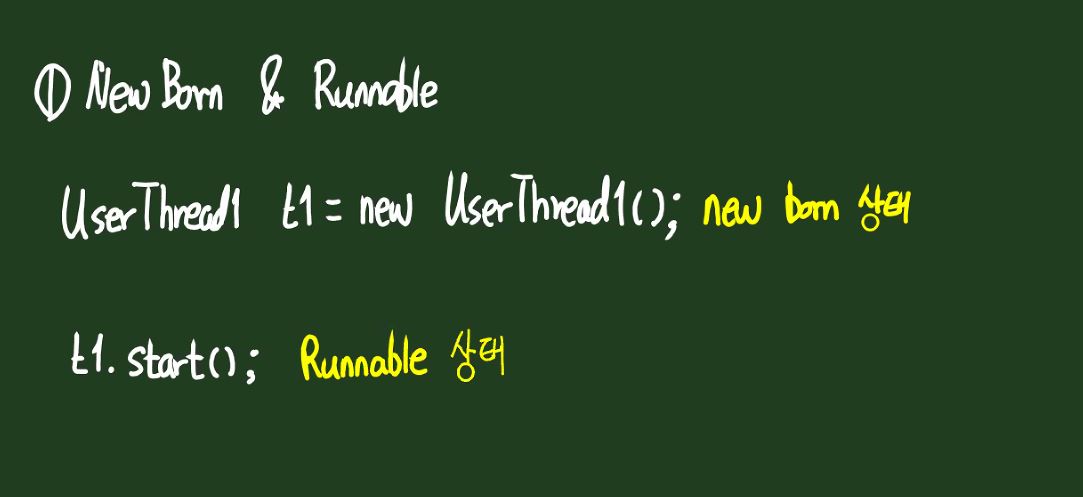 ① New Born & Runnable
UserThread1 t1 = new UserThread1(); new born 상태
t1.start(); Runnable 상태